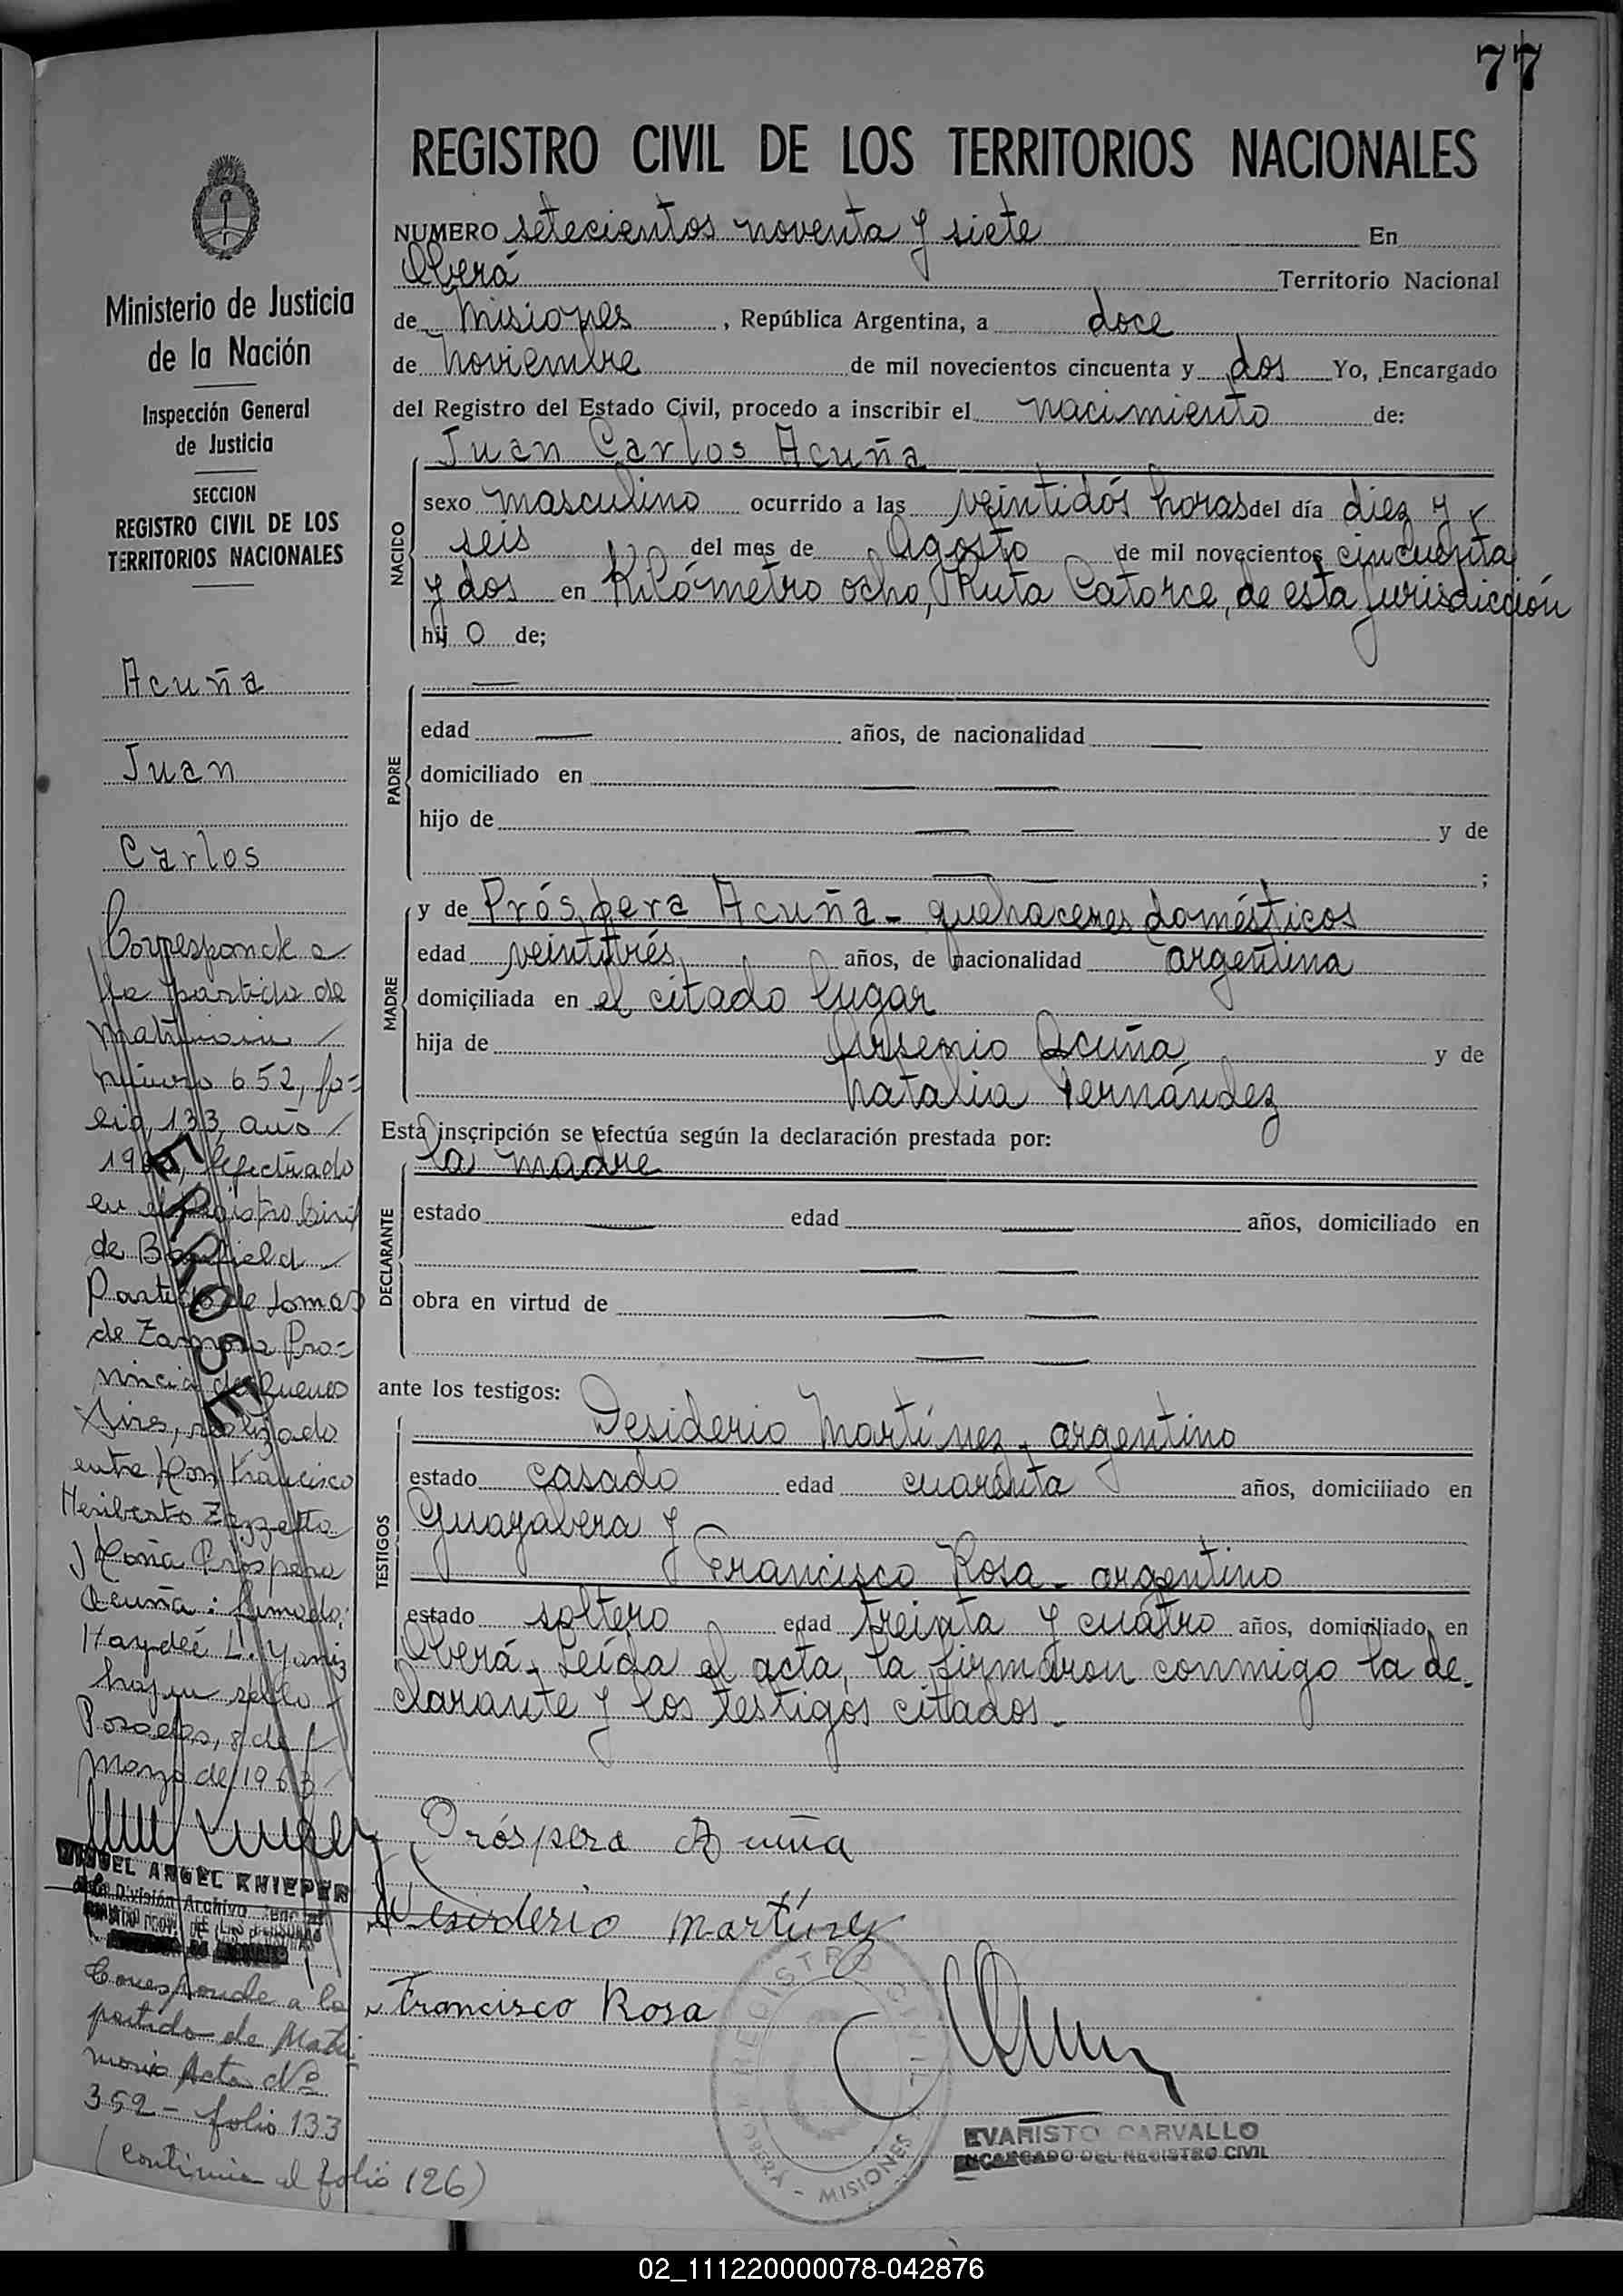 77
REGISTRO CIVIL DE LOS TERRITORIOS NACIONALES
NUMERO setecientos noventa y siete En
Oberá Territorio Nacional
de Misiones, República Argentina, a doce
de noviembre de mil novecientos cincuenta y dos Yo, Encargado
del Registro del Estado Civil, procedo a inscribir el nacimiento de:
Juan Carlos Acuña
NACIDO
sexo masculino ocurrido a las veintidós horas del día diez y
seis del mes de Agosto de mil novecientos cincuenta
y dos en Kilómetro ocho, Ruta Catorce, de esta jurisdicción
hijo de;
PADRE
edad años, de nacionalidad
domiciliado en
hijo de y de
;
MADRE
y de Próspera Acuña - quehaceres domésticos
edad veintitrés años, de nacionalidad argentina
domiciliada en el citado lugar
hija de Arsenio Acuña y de
Natalia Fernández
Esta inscripción se efectúa según la declaración prestada por:
la madre
DECLARANTE
estado edad años, domiciliado en
obra en virtud de
ante los testigos:
TESTIGOS
Desiderio Martínez - argentino
estado casado edad cuarenta años, domiciliado en
Guayabera y
Francisco Rosa - argentino
estado soltero edad treinta y cuatro años, domiciliado en
Oberá. Leída el acta, la firmaron conmigo la de-
clarante y los testigos citados.-
Próspera Acuña
Desiderio Martínez
Francisco Rosa
REGISTRO CIVIL
MISIONES
EVARISTO CARVALLO
ENCARGADO DEL REGISTRO CIVIL
Ministerio de Justicia
de la Nación
Inspección General
de Justicia
SECCION
REGISTRO CIVIL DE LOS
TERRITORIOS NACIONALES
Acuña
Juan
Carlos
Corresponde a
la partida de
matrimonio
número 652, fo=
lio 133, año
efectuado
en el Registro Civil
de Banfield
Partido de Lomas
de Zamora Pro=
vincia de Buenos
Aires, realizado
entre Don Francisco
Heriberto Zezzetta
y Doña Próspera
Acuña: firmado:
Haydée L. Yaniz
hay un sello -
Posadas, 8 de
marzo de 1963
ERROSE
MIGUEL ANGEL KNIEPER
División Archivo
Corresponde a la
partida de Matri
monio Acta Nº
352 - folio 133
(continúa al folio 126)
02_111220000078-042876